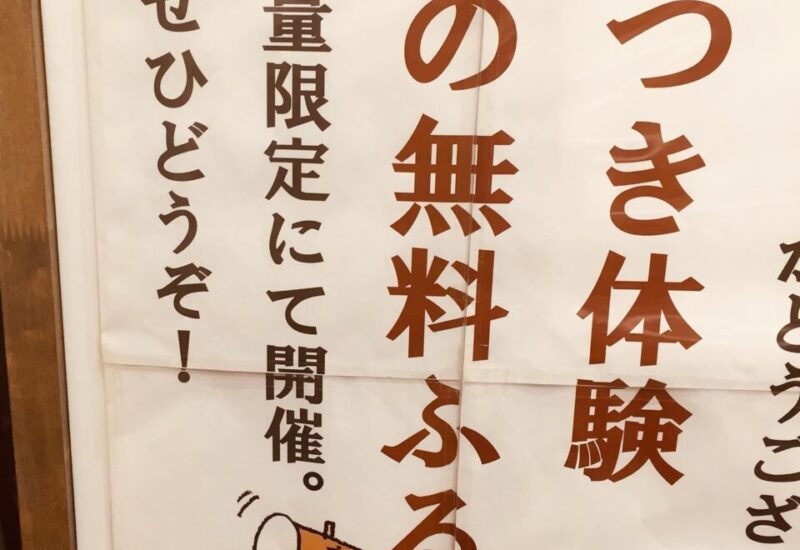 とうござ
つき体験
の無料ふる
量限定にて開催。
ぜひどうぞ!